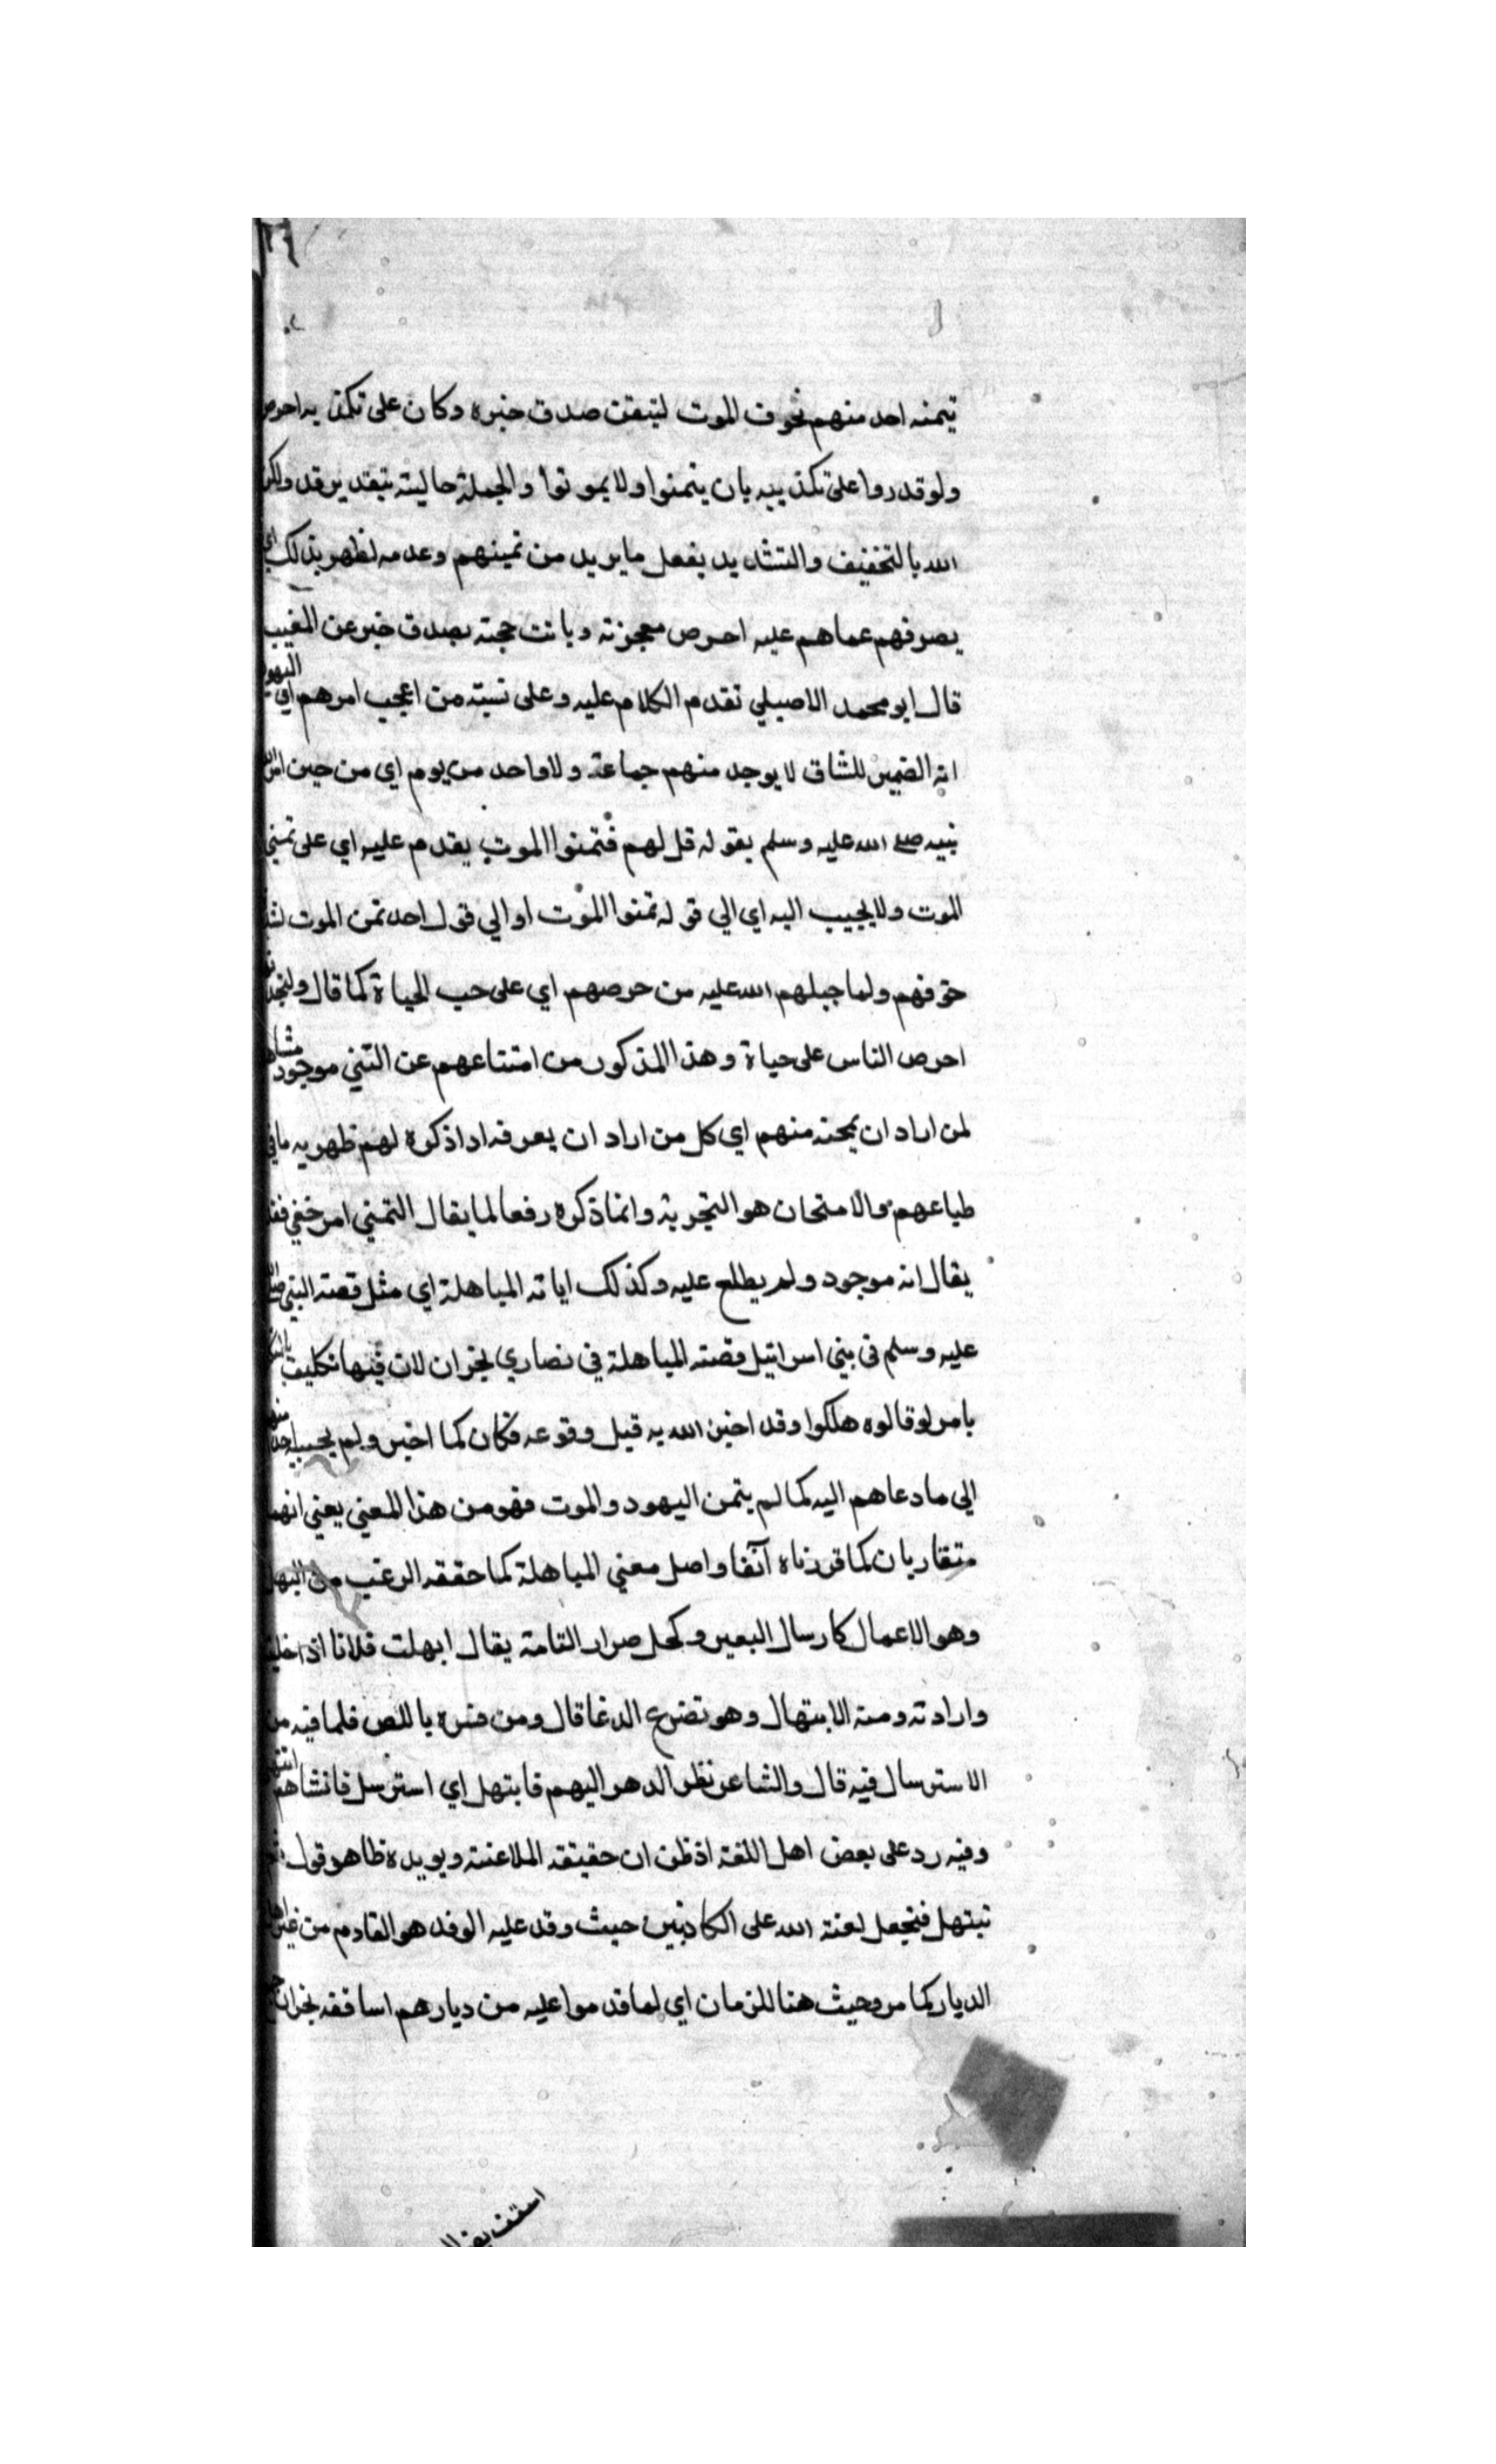 يتمنه احد منهم بخوف الموت لتيقن صدق خبره وكان على تكذيبه احرص
ولو قدروا على تكذيبيه بان يتمنوا ولا يموتوا والجملة حالية بتقدير قد ولكن
الله بالتخفيف والتشديد يفعل ما يريد من تمينهم وعدمه لظهر بذلك اي
يصرفهم عماهم عليه احرص معجزته وبانت حجته بصدق خبر عن المغيب
قال ابو محمد الاصيلي تقدم الكلام عليه وعلى نسبته من اعجب امرهم اي اليهود
انه الضمير للشان لا يوجد منهم جماعة ولا واحد من يوم اي من حين امر الله
نبيه صلى الله عليه وسلم بقوله قل لهم فتمنوا الموت يقدم عليه اي على تمني
الموت ولا يجيب اليه اي الي قوله تمنوا الموت او الي قول احد تمن الموت
خوفهم ولما جبلهم الله عليه من حرصهم اي على حب الحياة كما قال ولتجدنهم
احرص الناس على حياة وهذا المذكور من امتناعهم عن التمني موجود مشاهد
لمن اراد ان يمحنه منهم اي كل من اراد ان يعرفه اذا ذكره لهم ظهر به ما في
طباعهم والامتحان هو التجربة وانما ذكره رفعا لما يقال التمني امر خفي فقد
يقال انه موجود ولم يطلع عليه وكذلك اياته المباهلة اي مثل قصة النبي صلى الله
عليه وسلم في بني اسرائيل قصة المباهلة في نصاري نجران لان فيها تكليف
بامر لو قالوه هلكوا وقد اخبر الله به قبل وقوعه فكان كما اخبر ولم يجب احد منهم
الي ما دعاهم اليه كما لم يتمن اليهود والموت فهو من هذا المعني يعني انهما
متقاربان كما قررناه آنفا واصل معني المباهلة كما حققه الرغب من البهل
وهو الاعمال كارسال البعير وكحل صرار التامة يقال ابهلت فلانا اذا خليته
وارادته ومنه الابتهال وهو تضرع الدعا قال ومن فسره باللعن فلما فيه من
الاسترسال فيه قال والشاعر نظر الدهر اليهم فابتهل اي استرسل فانشاهم انتهى
وفيه رد على بعض اهل اللغة اذ ظن ان حقيقة الملاعنة ويويده ظاهر قوله
نبتهل فنجعل لعنة الله على الكاذبين حيث وفد عليه الوفد هو القادم من غير اهل
الديار كما مر وحيث هنا للزمان اي لما قدموا عليه من ديارهم اساقفة نجران
اسقف